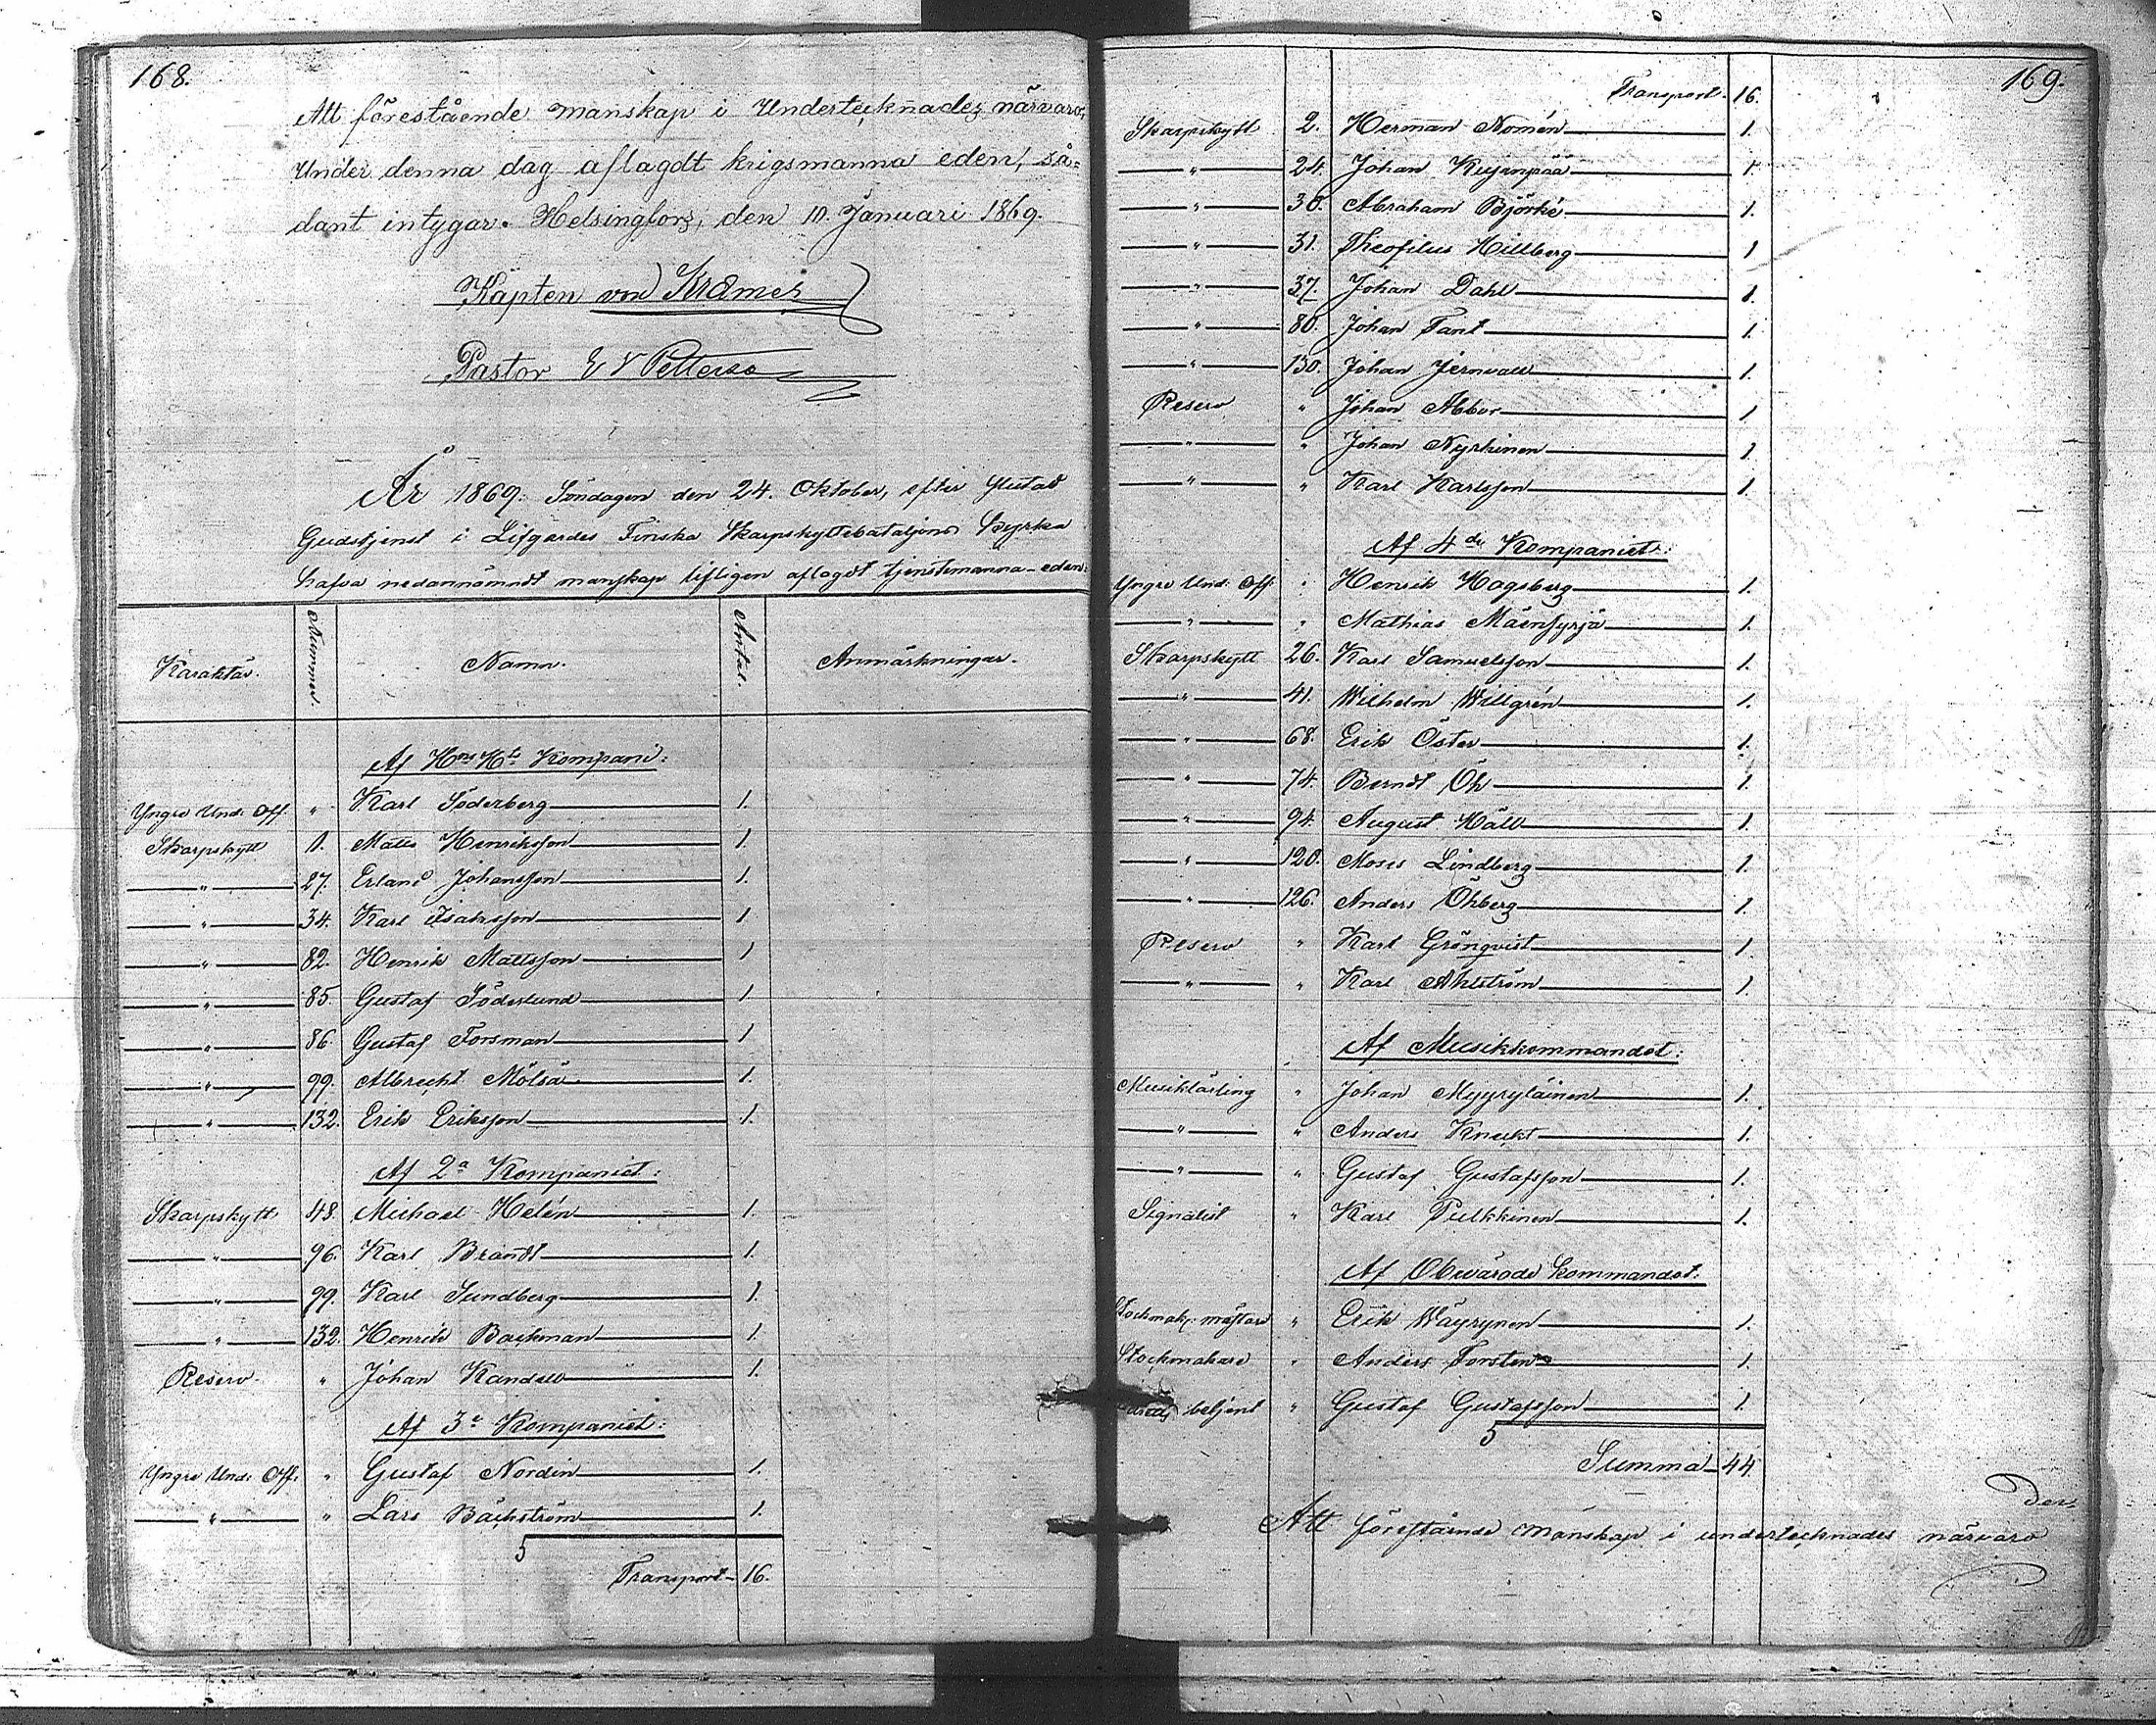 168.
Att förestående manskap i Undertecknades närvaro,
Under denna dag aflagdt krigsmanna eden, så-
dant intygar. Helsingfors, den 10. Januari 1869.
Kapten von Kræmer
Pastor E V Petterso
År 1869. Söndagen den 24. Oktober, efter slutad
Gudstjenst i Lifgardes Finska Skarpskyttebataljons Kyrka
hafva nedannämndt manskap lifligen aflagdt tjenstemanna-eden:
Karaktär. Nummer. Namn. Antal. Anmärkningar.
Af Hans Hts Kompani:
Yngre Und: Off. " Karl Söderberg 1.
Skarpskytt 1. Matts Henriksson 1.
" 27. Erland Johansson 1.
" 34. Karl Isaksson 1
" 82. Henrik Mattsson 1
" 85. Gustaf Söderlund 1
" 86. Gustaf Forsman 1
" 99. Albrecht Mölsä 1.
" 132. Erik Eriksson 1.
Af 2a Kompaniet:
Skarpskytt 48. Michael Helén 1.
" 96. Karl Brandt 1.
" 99. Karl Sundberg 1.
" 132. Henrik Backman 1.
Reserv. " Johan Kandell 1.
Af 3e Kompaniet:
Yngre Und: Off. " Gustaf Nordin 1.
" " Lars Bäckström 1.
5
Transport 16.
169.
Transport 16.
Skarpskytt 2. Herman Nomén 1.
" 24. Johan Kujanpää 1
" 30. Abraham Björke 1.
" 31. Theofilus Hillberg 1
" 37. Johan Dahl 1.
" 80. Johan Fant 1.
" 130. Johan Jernvall 1.
Reserv " Johan Abbor 1
" " Johan Nyrhinen 1
" " Karl Karlsson 1.
Af 4de Kompaniet:
Yngre Und: Off. " Henrik Hogsberg 1.
" " Mathias Mäensyrjä 1.
Skarpskytt 26. Karl Samuelsson 1.
" 41. Wilhelm Willgrén 1.
" 68. Erik Öster 1.
" 74. Berndt Öh 1.
" 94. August Häll 1.
" 120. Moses Lindberg 1.
" 126. Anders Öhberg 1.
Reserv " Karl Grönqvist 1.
" " Karl Ahlström 1.
Af Musikkommandot:
Musiklärling " Johan Myyryläinen 1.
" " Anders Knecht 1.
" " Gustaf Gustafsson 1.
Signalist " Karl Pulkkinen 1.
Af Obevärade kommandot.
Stockmak: mästare " Erik Wäyrynen 1.
Stockmakare " Anders Forsten 1
betjent " Gustaf Gustafsson 1
5
Summa 44.
Att förestående manskap i undertecknades närvaro